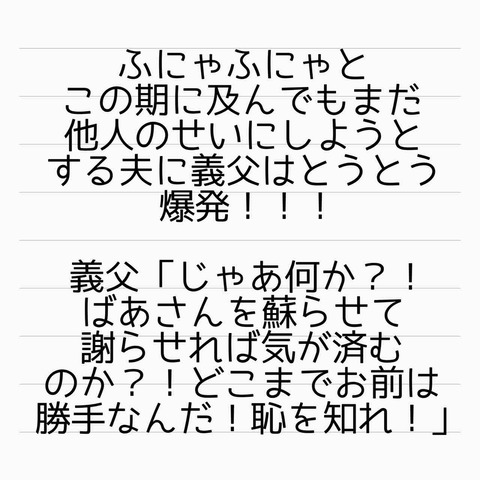 ふにゃふにゃと
この期に及んでもまだ
他人のせいにしようと
する夫に義父はとうとう
爆発！！！
義父「じゃあ何か？！
ばあさんを蘇らせて
謝らせれば気が済む
のか？！どこまでお前は
勝手なんだ！恥を知れ！」